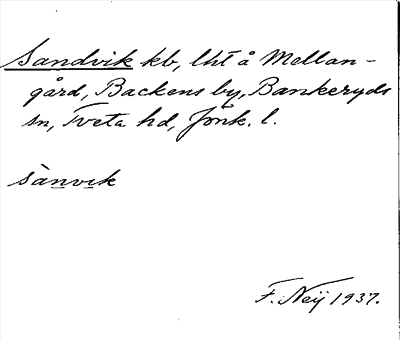 Sandvik kb, lht å Mellan-
gård, Backens by, Bankeryds
sn, Tveta hd, Jönk. l.
sànvik
F. Neij 1937.